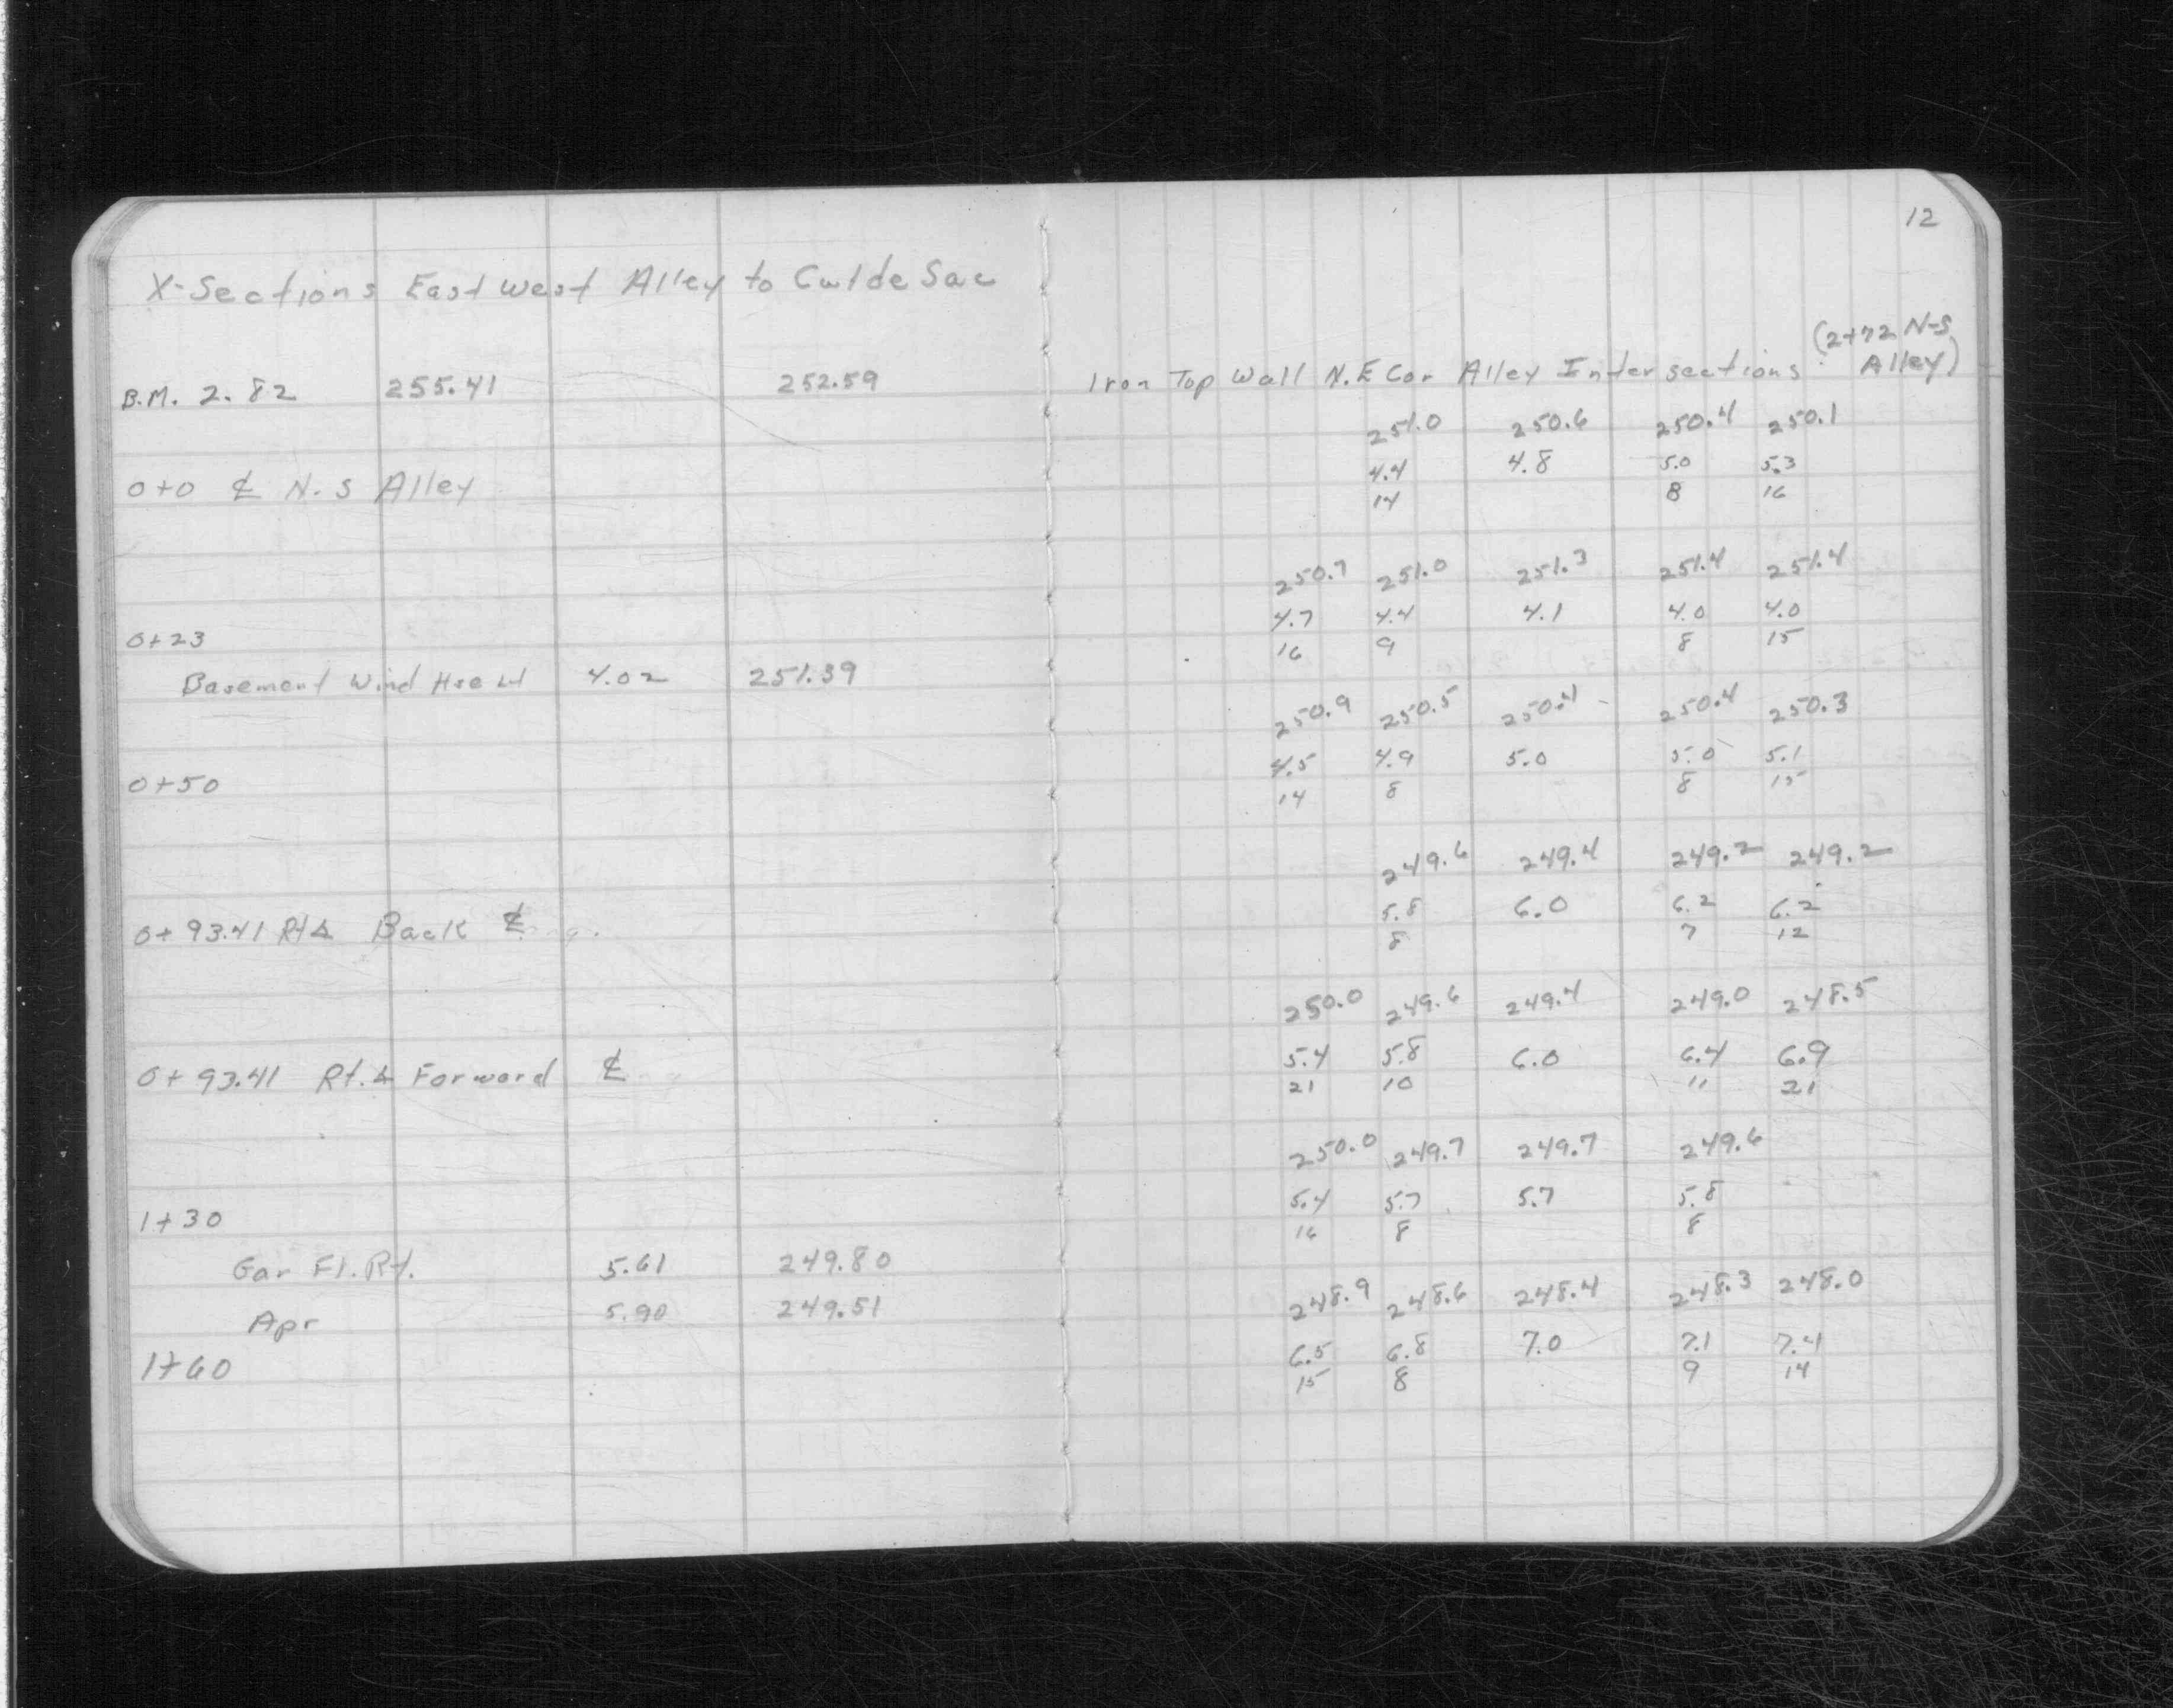 12
X-Sections East West Alley to Culde Sac
(2+72 N-S
Alley)
B.M. 2.82 255.41 252.59 Iron Top Wall N.E Cor Alley Intersections
251.0 250.6 250.4 250.1
4.4 4.8 5.0 5.3
0+0 ℄ N.S Alley
14 8 16
250.7 251.0 251.3 251.4 251.4
4.7 4.4 4.1 4.0 4.0
0+23
16 9 8 15
Basement Wind Hse Lt 4.02 251.39
250.9 250.5 250.4 250.4 250.3
4.5 4.9 5.0 5.0 5.1
0+50
14 8 8 15
249.6 249.4 249.2 249.2
5.8 6.0 6.2 6.2
0+93.41 Rt∆ Back ℄
8 7 12
250.0 249.6 249.4 249.0 248.5
5.4 5.8 6.0 6.4 6.9
0+93.41 Rt.∆ Forword ℄
21 10 11 21
250.0 249.7 249.7 249.6
5.4 5.7 5.7 5.8
1+30
16 8 8
Gar Fl. Rt. 5.61 249.80
248.9 248.6 248.4 248.3 248.0
Apr 5.90 249.51
6.5 6.8 7.0 7.1 7.4
1+60
15 8 9 14